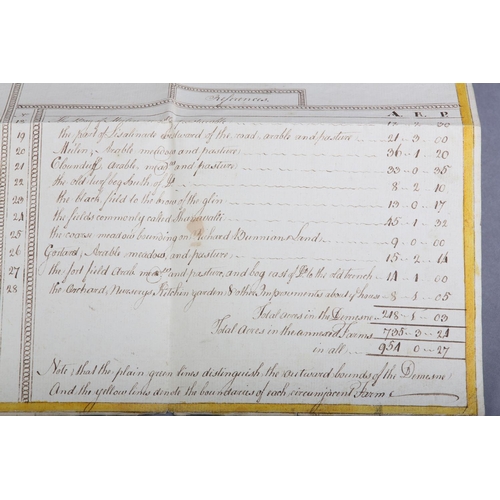 References
A. R. P.
19 the part of Lisalincute westward of the road, arable and pasture 21 - 3 - 00
20 Milen, Arable meadow and pasture 36 - 1 - 20
21 Clounduff arable, mead.w and pasture 33 - 0 - 35
22 the old turf bog South of D.o 8 - 2 - 10
23 the black field to the brow of the glin 13 - 0 - 17
24 the fields commonly called 45 - 1 - 32
25 the coarse meadow bounding on Richard Land 9 - 0 - 00
26 Arable, meadow, and pasture 15 - 2 - 14
27 the fort field Arab. mead.w and pasture, and bog east of D.o to the old trench 14 - 1 - 00
28 the Orchard, Nurserys, Kitchin garden & other Improvements about y.e house 8 - 1 - 05
Total acres in the Demesne 218 - 1 - 03
Total Acres in the annexed Farms 735 - 3 - 24
in all 954 - 0 - 27
Note, that the plain green lines distinguish the outward bounds of the Demesne
And the yellow lines denote the boundaries of each circumjacent Farm